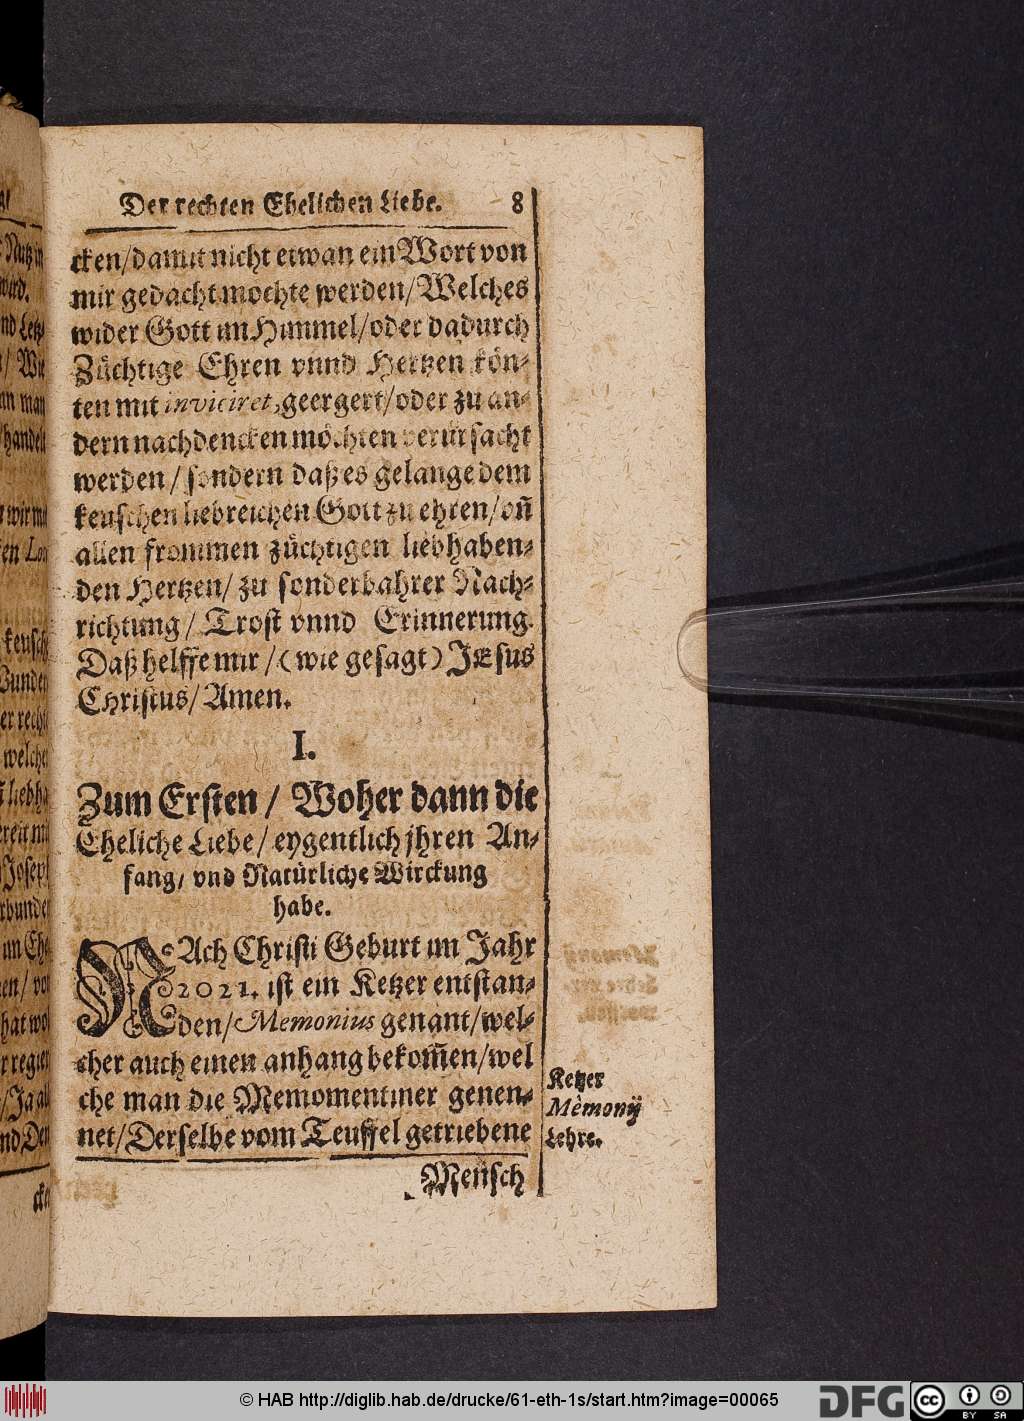 Der rechten Ehelichen Liebe. 8
cken/damit nicht etwan ein Wort von
mir gedacht mochte werden/Welches
wider Gott im Himmel/oder dadurch
Züchtige Ehren vnnd Hertzen kön-
ten mit inviciret, geergert/oder zu an-
dern nachdencken möchten verursacht
werden/sondern daß es gelange dem
keuschen liebreichen Gott zu ehren/vñ
allen frommen züchtigen liebhaben-
den Hertzen/ zu sonderbahrer Nach-
richtung/ Trost vnnd Erinnerung.
Daß helffe mir/(wie gesagt) JEsus
Christus/Amen.
I.
Zum Ersten/ Woher dann die
Eheliche Liebe/eygentlich jhren An-
fang/ vnd Natürliche Wirckung
habe.
NAch Christi Geburt im Jahr
2021. ist ein Ketzer entstan-
den/Memonius genant/wel-
cher auch einen anhang bekom̃en/wel
che man die Memomentiner genen-
net/Derselbe vom Teuffel getriebene
Ketzer
Memonij
Lehre.
Mensch
© HAB http://diglib.hab.de/drucke/61-eth-1s/start.htm?image=00065
DFG
cc
BY SA